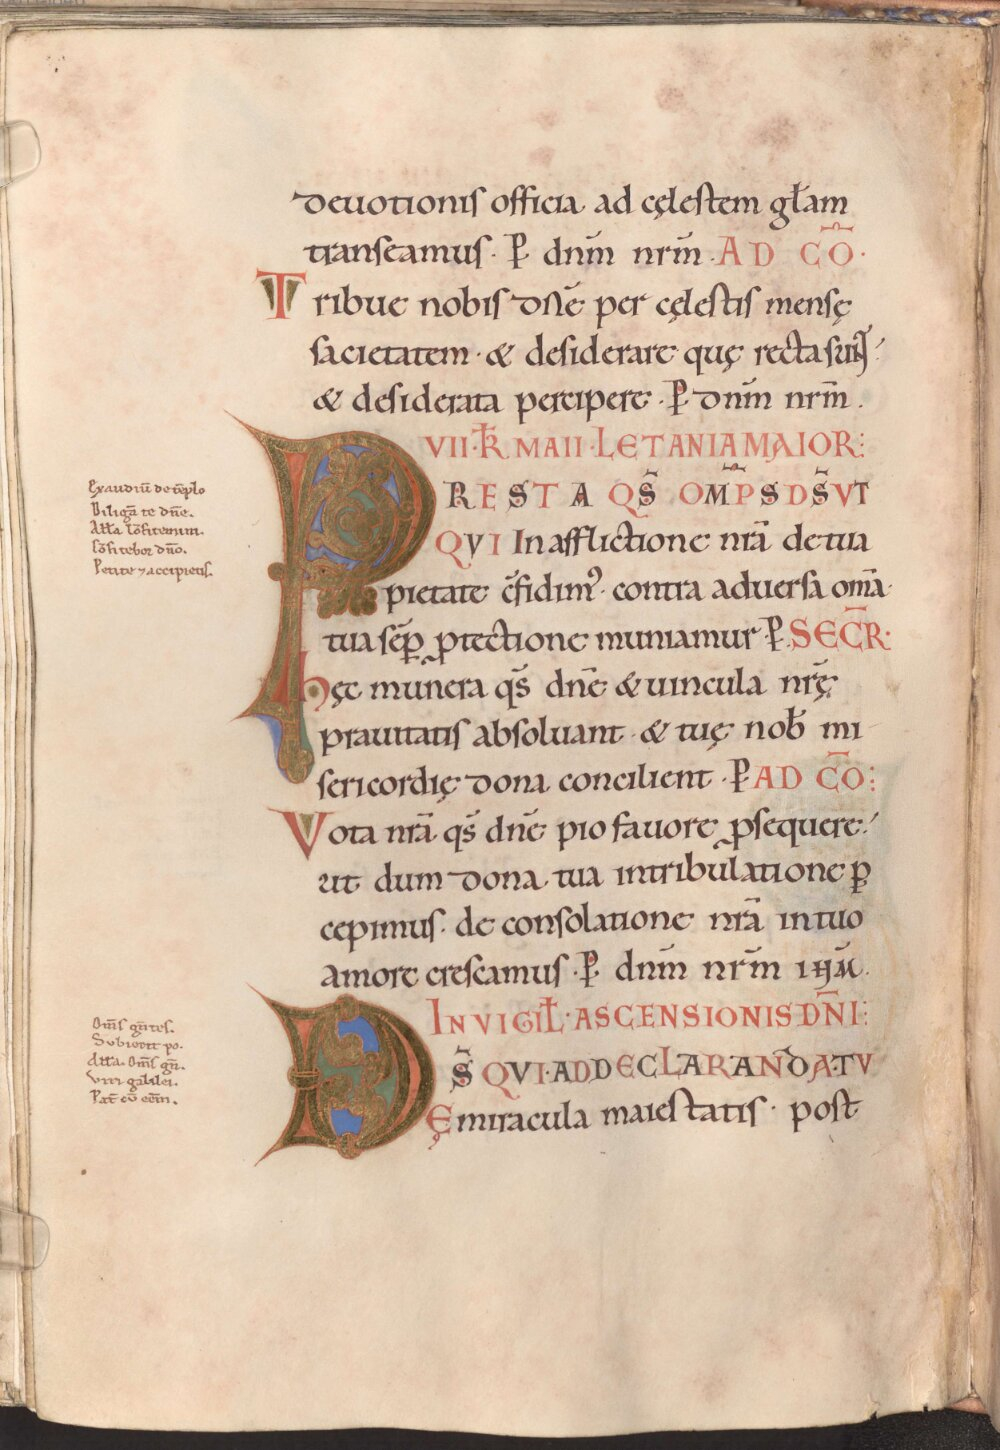 deuotionis officia ad cęlestem gl̄am
transeamus. P̲ dnm̄ nrm̄. AD CŌ.
Tribue nobis dn̄e per cęlestis mensę
sacietatem. & desiderare quę recta sunt;
& desiderata percipere. P̲ dnm̄ nrm̄.
VII. KL̄ MAII. LETANIA MAIOR:
PRESTA QS̄ OMP̄S DS̄ VT
QVI In afflictione nr̄a de tua
pietate c̄fidimꝰ. contra aduersa om̄a
tua sēꝑ ꝓtectione muniamur. P̲. SECR̄.
Hęc munera qs̄ dn̄e & uincula nr̄ę
prauitatis absoluant. & tuę nob̄ mi
sericordię dona concilient. P̲ AD CŌ:
Vota nr̄a qs̄ dn̄e pio fauore ꝓsequere;
ut dum dona tua in tribulatione ꝑ
cepimus. de consolatione nr̄a in tuo
amore crescamus. P̲ dnm̄ nrm̄ ihm̄.
IN VIGIL̄. ASCENSIONIS DN̄I:
DS̄ QVI. AD DECLARANDA. TV
Ę miracula maiestatis. post
Exaudiū de tēplo
Diligā te dn̄e.
All̄a Cōfitemini.
Cōfitebor dn̄o.
Petite ⁊ accipietis.
Om̄s gn̄tes.
Subiecit po.
All̄a. Om̄s gn̄.
Viri galilei.
Pat̄ cū eēm.